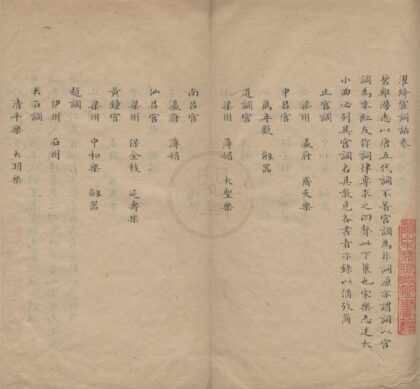 濯絳宦詞話卷
碧雞漫志以唐五代詞不著宮調為非詞源亦謂詞以宮
調為本紅友作詞律專求之四聲此下策也宋樂志遇大
小曲必列其宮調名其散見各書者亦錄以備攷焉
正宮調
梁州 瀛府 齊天樂
中呂宮
萬年歡 劍器
道調
梁州 薄媚 大聖樂
南呂宮
瀛府 薄媚
仙呂宮
梁州 保金枝 延壽樂
黃鐘宮
梁州 中和樂 劍器
越調
伊州 石州
大石調
清平樂